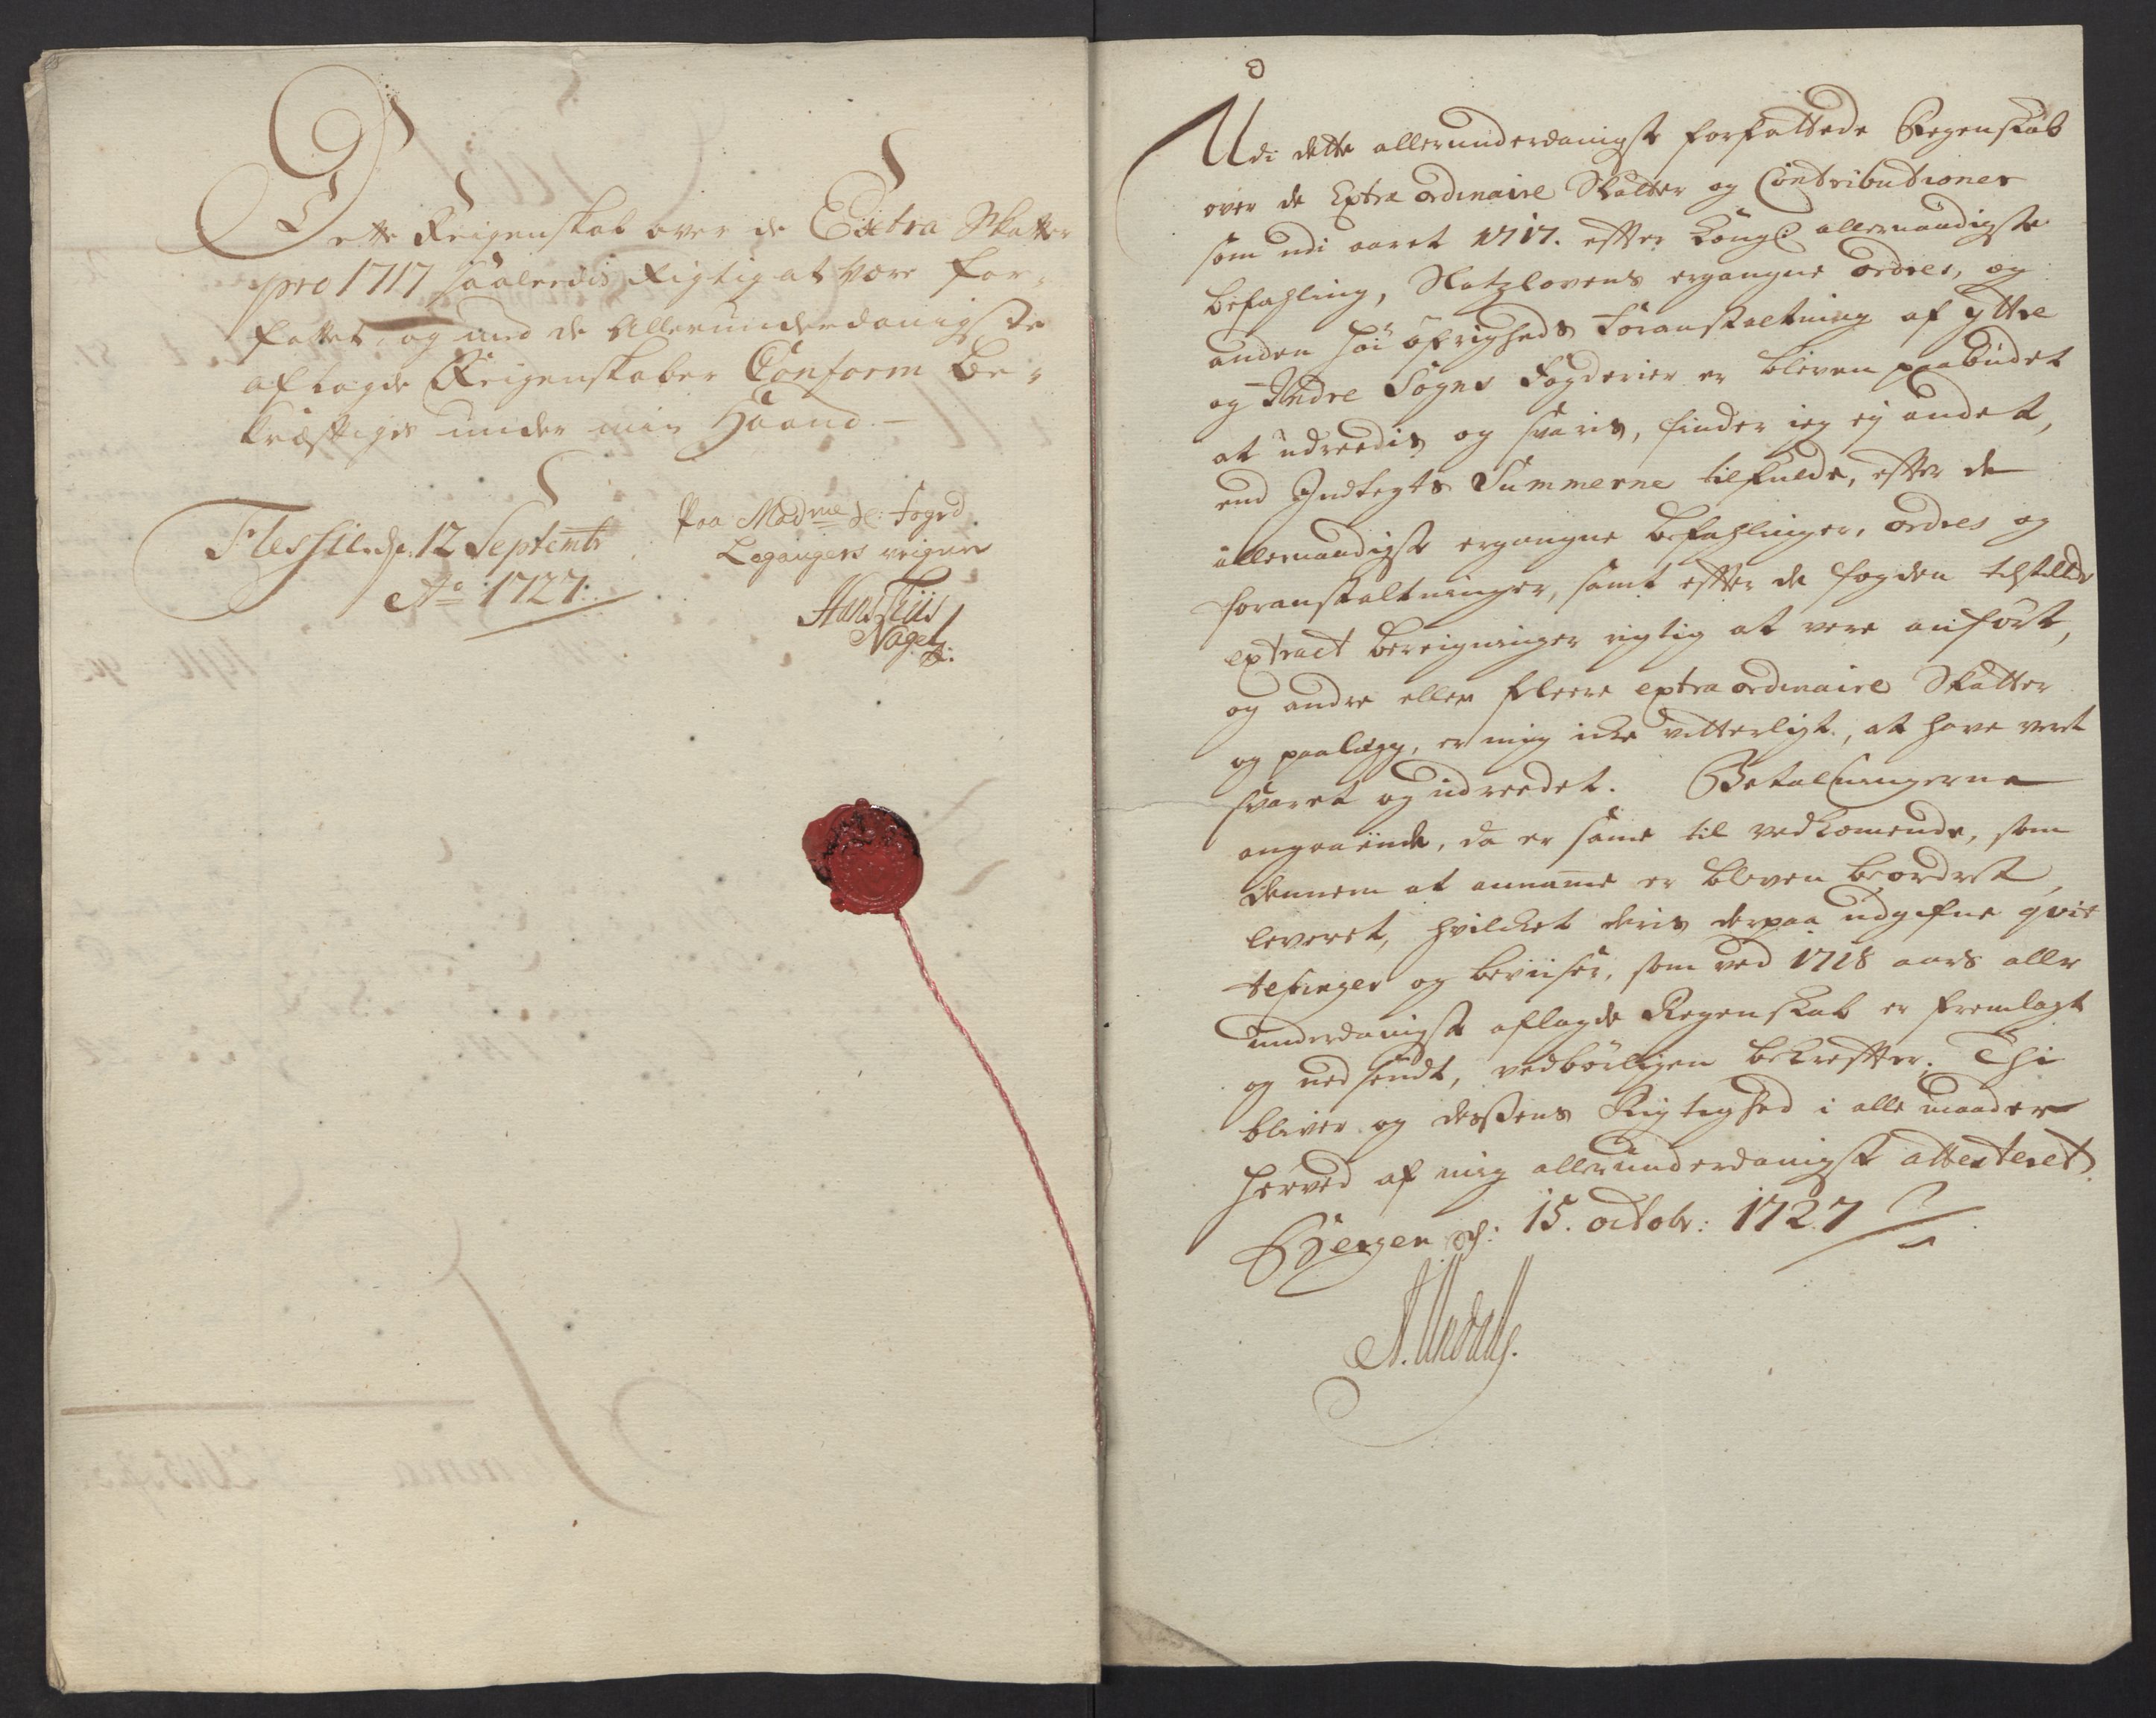 Dette Reigenskab over de Extra Skatter
pro 1717 saaleedis Rigtig at være for-
fattet, og med de Allerunderdanigste
aflagde Reigenskaber Conform Be-
kræftiges under min Haand.
Flesche. d. 12 Septembr
Ao 1727.
Paa Madme Sl: Foged
Leganger veigne
Hans Tüs
Nagel
Udi dette allerunderdanigst forfattede Regenskab
over de Extra ordinaire Skatter og Contributioner
som udi aaret 1717. efter Kongl: allernaadigste
befahling, Slotzlovens ergangne ordres, og
anden høi øfrigheds foranstaltning af yttre
og Indre Sogns Fogderier er bleven paabudet
at udreedis og svaris, finder ieg ej andet,
end Indtegts Summerne tilfulde, efter de
allernaadigst ergangne befahlinger, ordres og
foranstaltninger, samt efter de fogden tilstillede
extract bereigninger rigtig at vere anført,
og andre eller fleere extra ordinaire Skatter
og paalegg, er mig icke vitterligt, at have veret
svaret og udreedet. Betalningerne
angaaende, da er same til vedkomende, som
dennem at anname er bleven beordret,
leveret, hvilcket deris derpaa udgifne qvit-
teringer og beviiser, som ved 1718 aars aller
underdanigst aflagde Regenskab er fremlagt
og nedsendt, vedbørligen bekrefter. Thi
bliver og dessens Rigtighed i alle maader
herved af mig allerunderdanigst attesteret.
Bergen d: 15. octobr: 1727